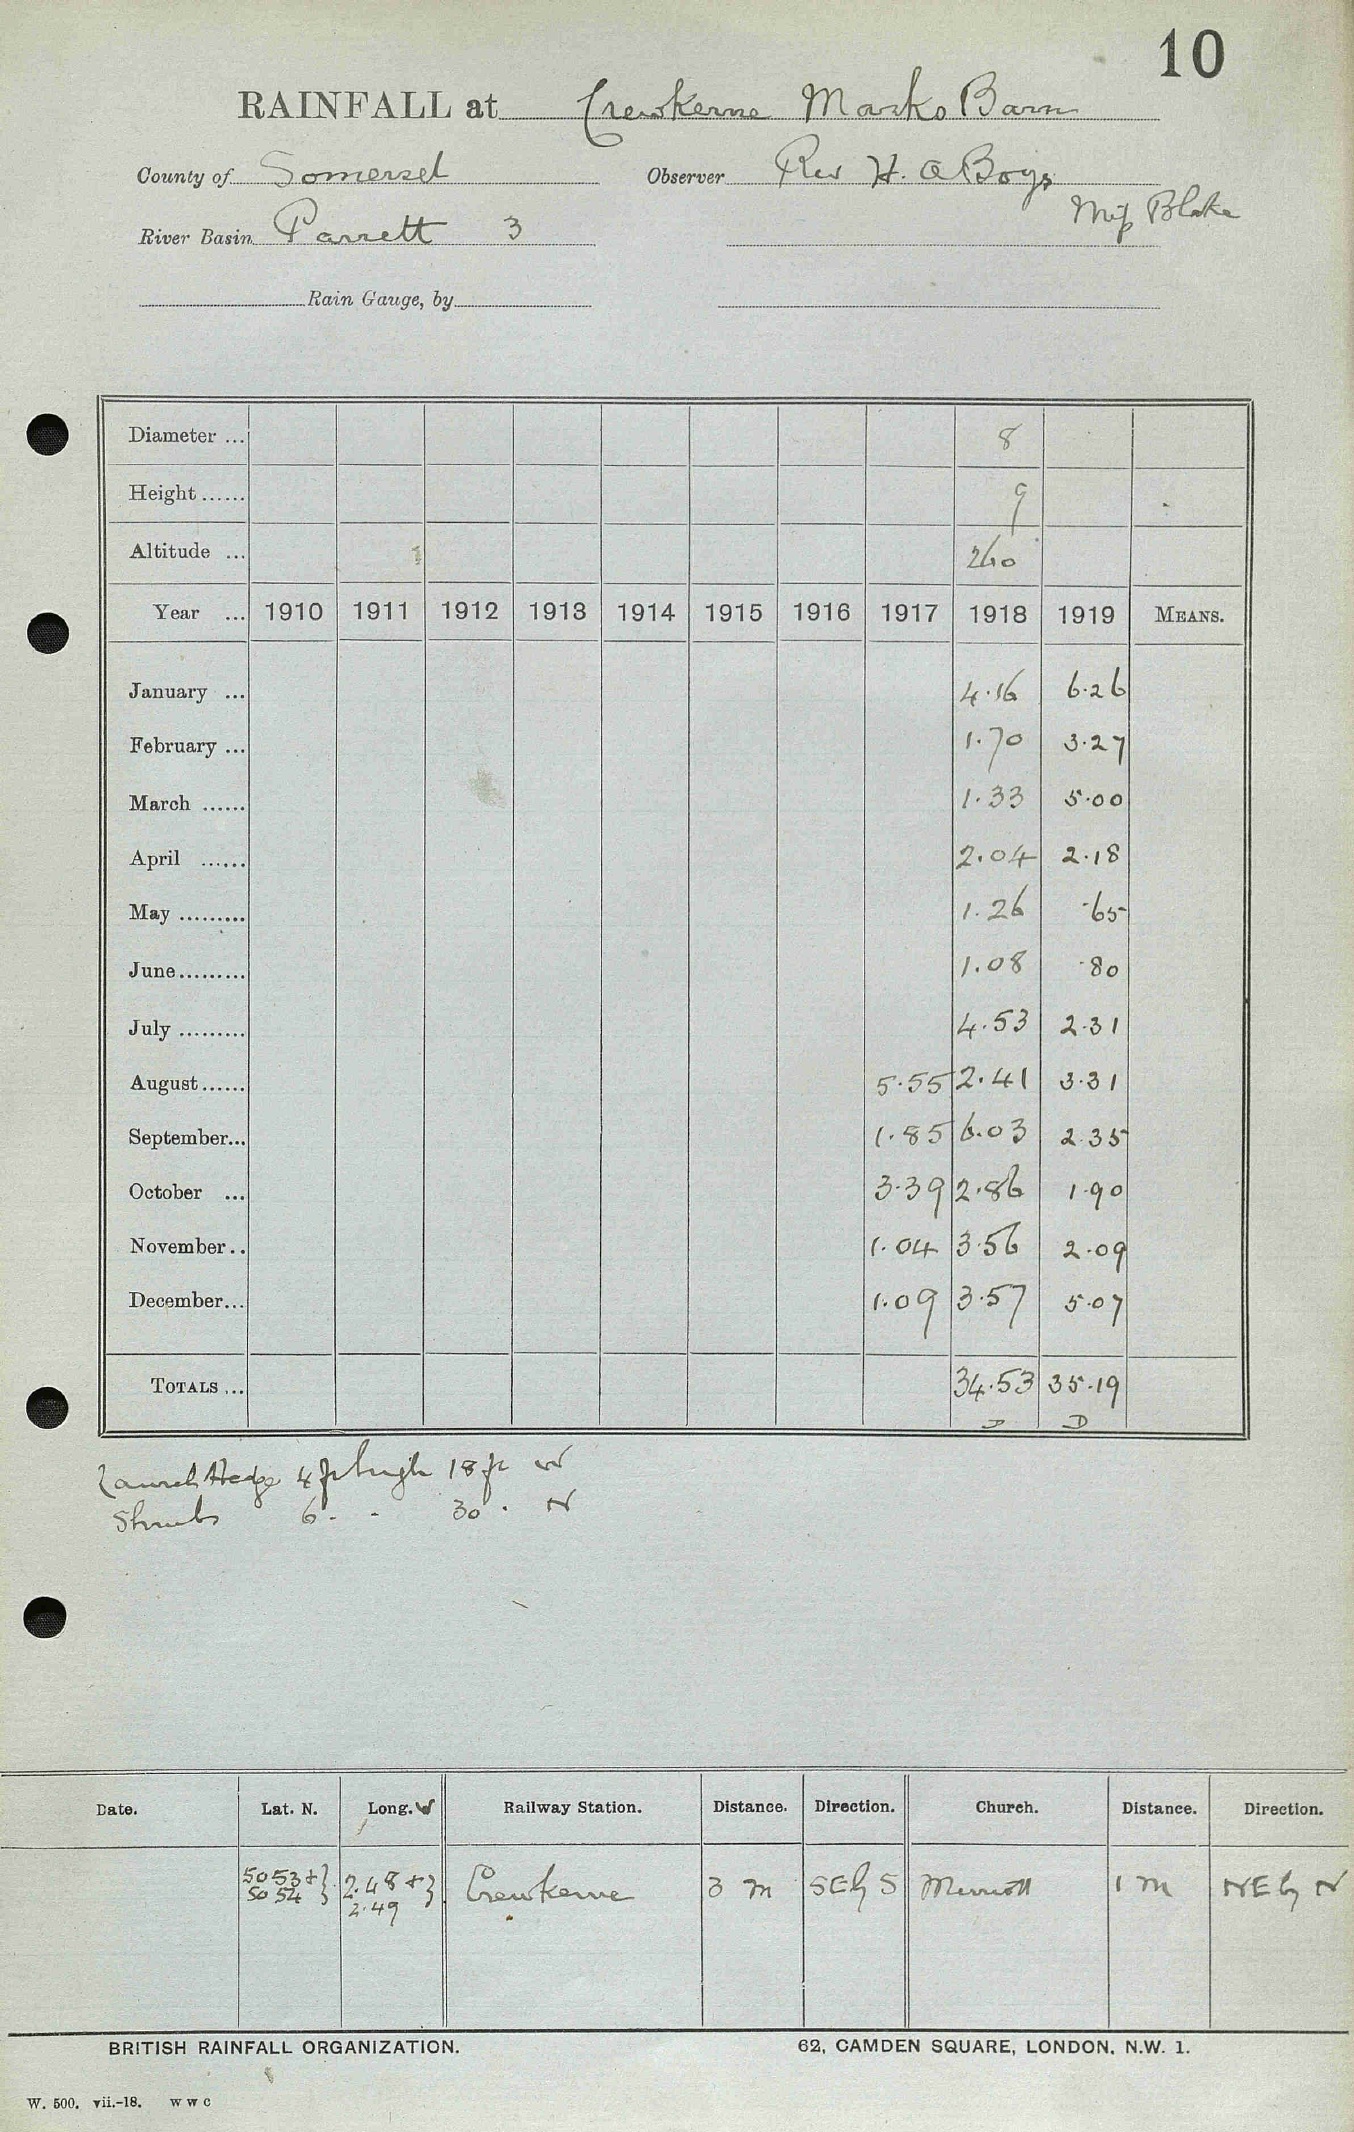 10
RAINFALL at Crewkerne Marks Barn
County of Somerset Observer Rev H. A Boys
Miss Blake
River Basin Parrett 3
Rain Gauge, by
Diameter ... 8
Height ...... 9
Altitude ... 260
Year ... 1910 1911 1912 1913 1914 1915 1916 1917 1918 1919 MEANS.
January ... 4.16 6.26
February ... 1.70 3.27
March ...... 1.33 5.00
April ...... 2.04 2.18
May ......... 1.26 .65
June......... 1.08 .80
July ......... 4.53 2.31
August...... 5.55 2.41 3.31
September... 1.85 6.03 2.35
October ... 3.39 2.86 1.90
November.. 1.04 3.56 2.09
December... 1.09 3.57 5.07
TOTALS ... 34.53 35.19
D D
Laurel Hedge 4 ft high 18 ft W
Shrubs 6 . . 30 . N
Date. Lat. N. Long. W Railway Station. Distance. Direction. Church. Distance. Direction.
50 53 + } 2.48 + } Crewkerne 3 m SE by S Merriott 1 m NE by N
50 54 } 2.49
BRITISH RAINFALL ORGANIZATION. 62, CAMDEN SQUARE, LONDON. N.W. 1.
W. 500. vii.-18. W W C